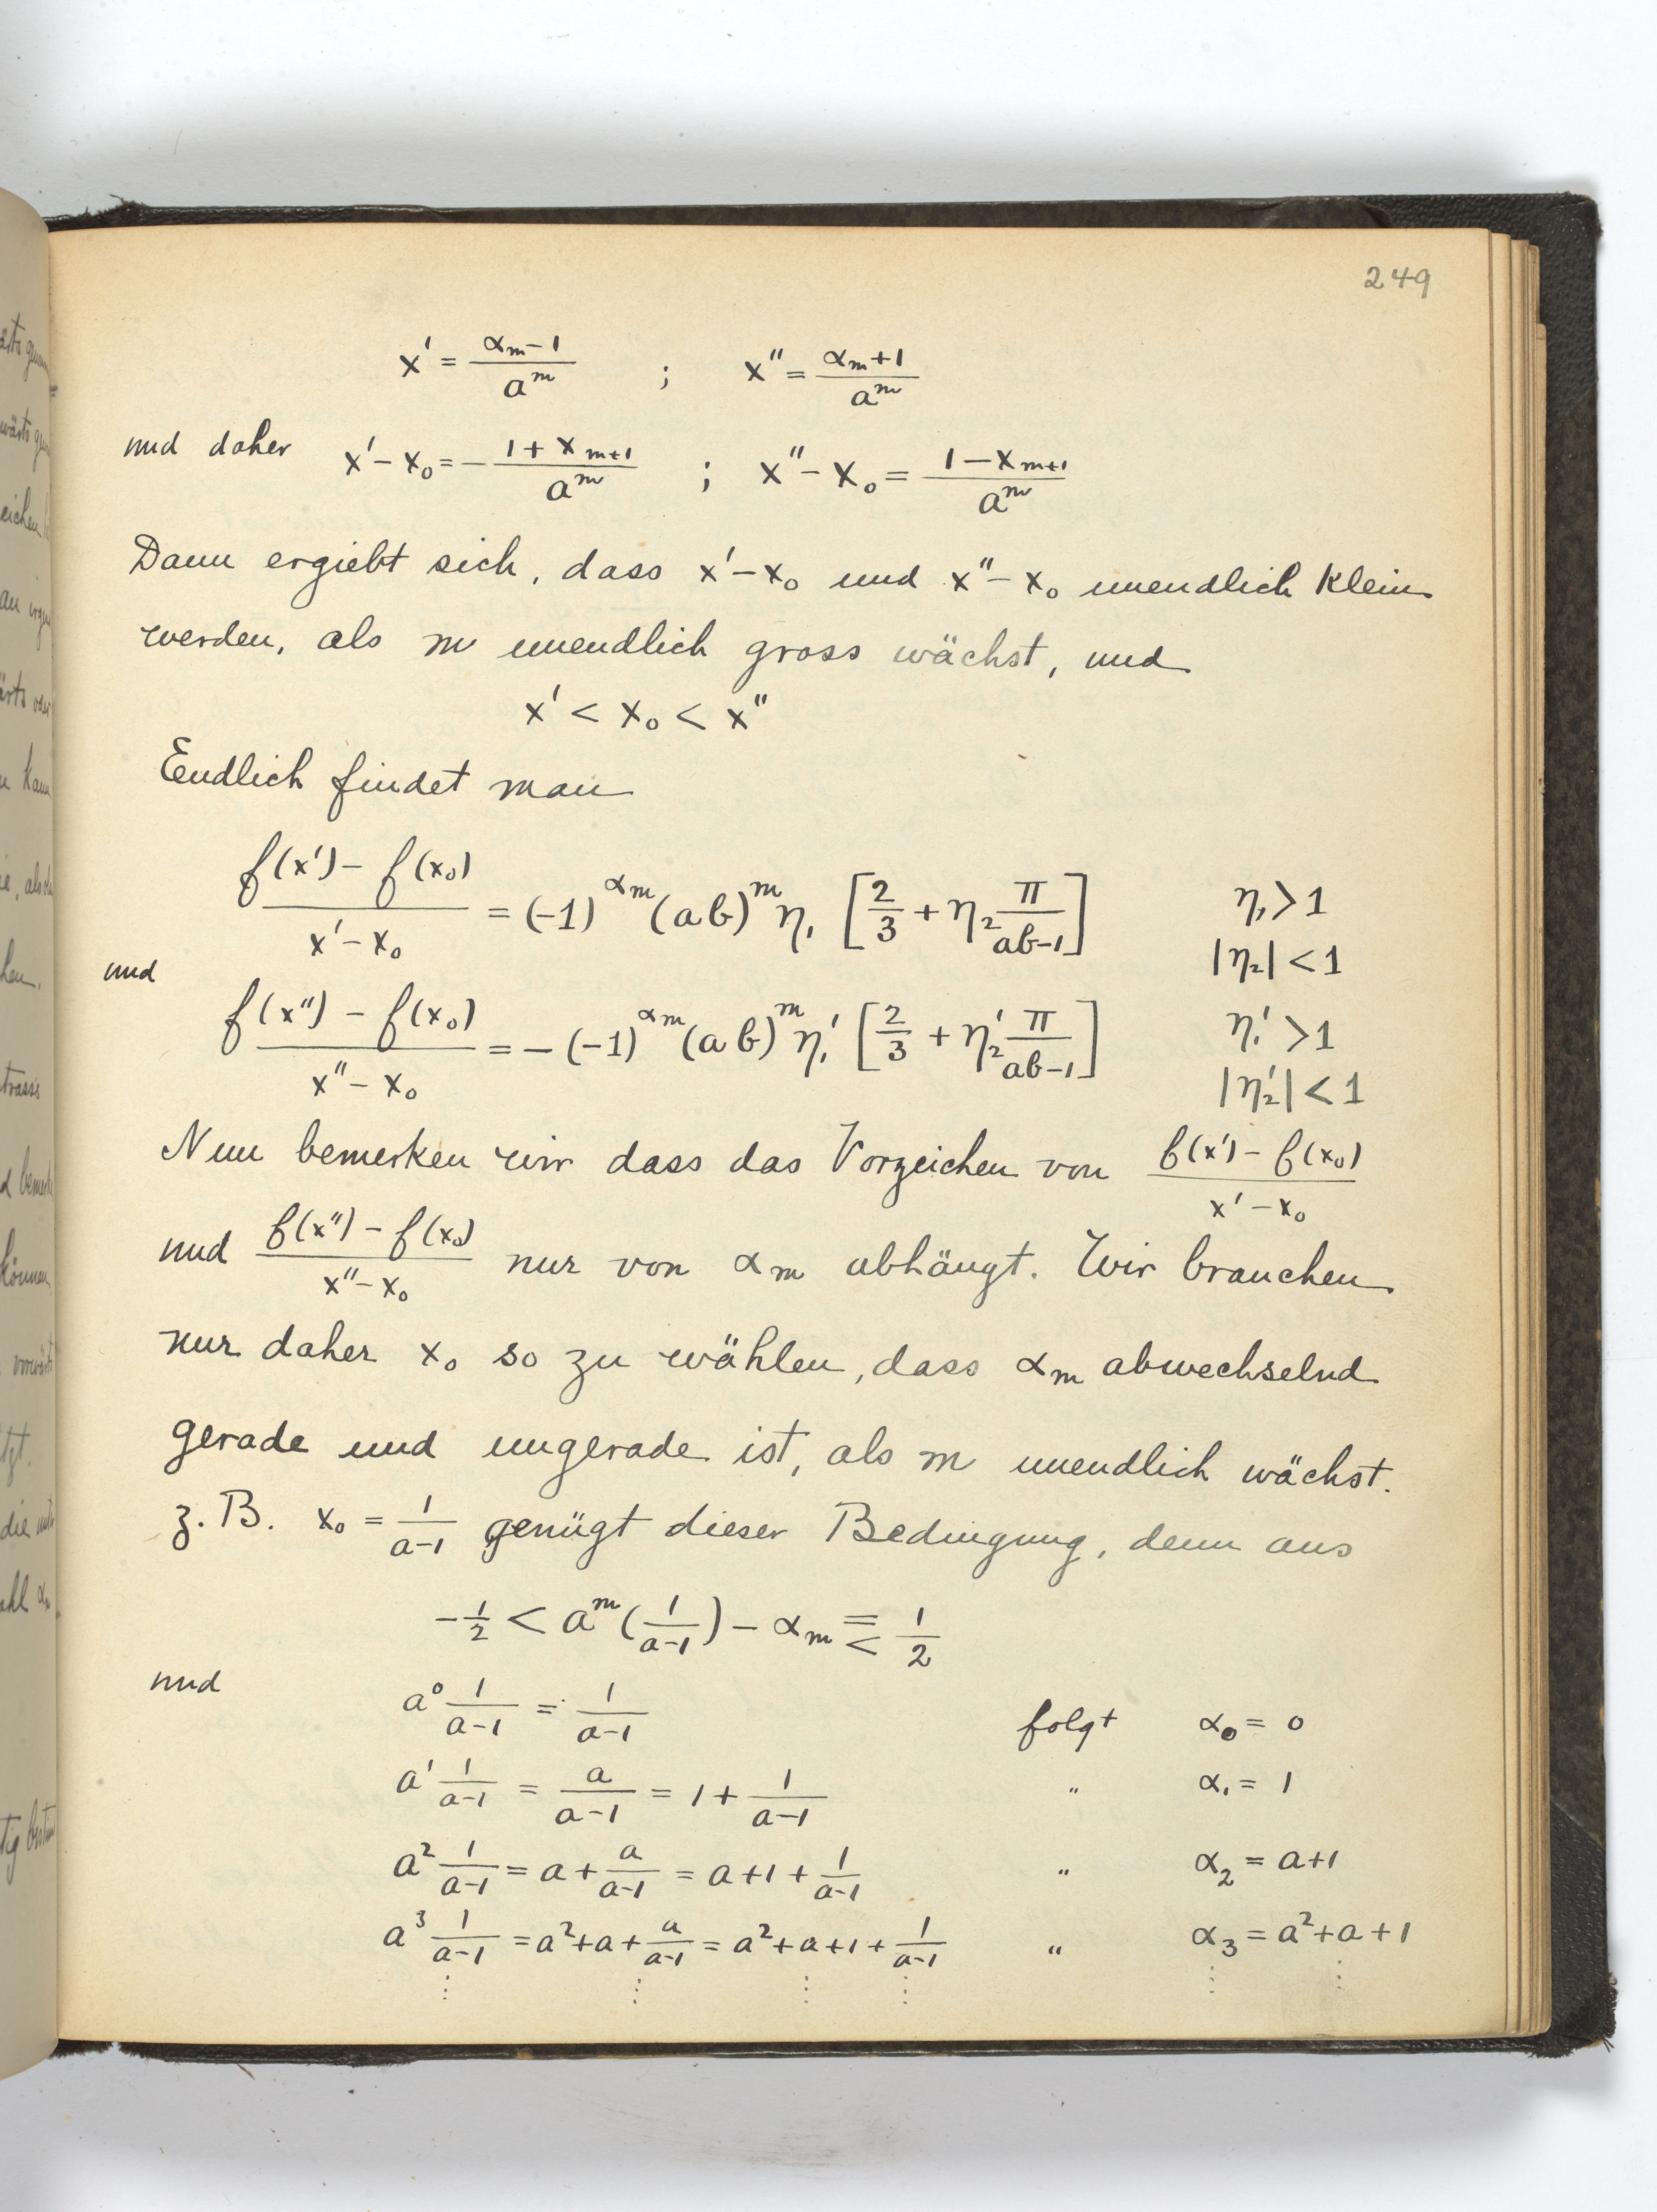 249
x' = (αₘ − 1)/aᵐ ; x'' = (αₘ + 1)/aᵐ
und daher x' − x₀ = − (1 + xₘ₊₁)/aᵐ ; x'' − x₀ = (1 − xₘ₊₁)/aᵐ
Dann ergiebt sich, dass x' − x₀ und x'' − x₀ unendlich klein
werden, als m unendlich gross wächst, und
x' < x₀ < x''
Endlich findet man
(f(x') − f(x₀))/(x' − x₀) = (−1)^αₘ (ab)ᵐ η₁ [2/3 + η₂ π/(ab−1)] η₁ > 1
|η₂| < 1
und
(f(x'') − f(x₀))/(x'' − x₀) = − (−1)^αₘ (ab)ᵐ η₁' [2/3 + η₂' π/(ab−1)] η₁' > 1
|η₂'| < 1
Nun bemerken wir dass das Vorzeichen von (f(x') − f(x₀))/(x' − x₀)
und (f(x'') − f(x₀))/(x'' − x₀) nur von αₘ abhängt. Wir brauchen
nur daher x₀ so zu wählen, dass αₘ abwechselnd
gerade und ungerade ist, als m unendlich wächst.
z. B. x₀ = 1/(a−1) genügt dieser Bedingung, denn aus
−1/2 < aᵐ (1/(a−1)) − αₘ ≦ 1/2
und
a⁰ 1/(a−1) = 1/(a−1) folgt α₀ = 0
a¹ 1/(a−1) = a/(a−1) = 1 + 1/(a−1) " α₁ = 1
a² 1/(a−1) = a + a/(a−1) = a+1 + 1/(a−1) " α₂ = a+1
a³ 1/(a−1) = a²+a + a/(a−1) = a²+a+1 + 1/(a−1) " α₃ = a²+a+1
⋮ ⋮ ⋮ ⋮ ⋮ ⋮